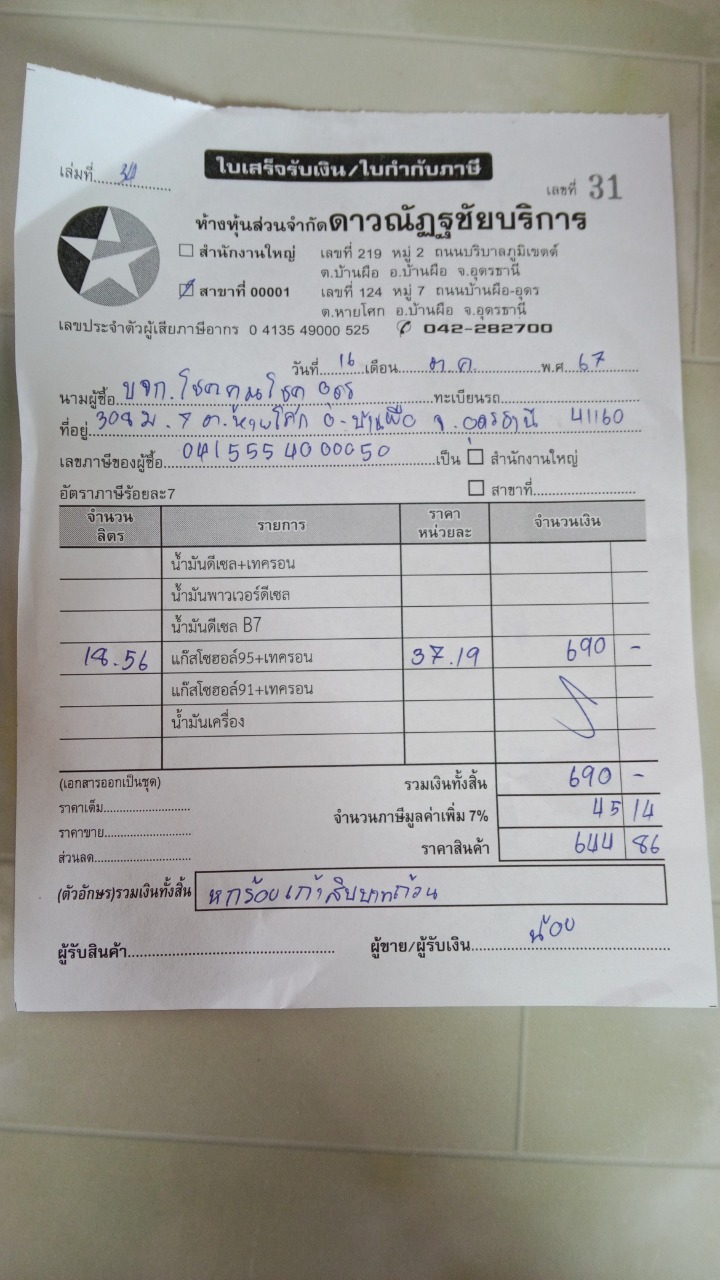 ใบเสร็จรับเงิน/ใบกำกับภาษี
เล่มที่
เลขที่ 31
ห้างหุ้นส่วนจำกัดดาวณัฏฐชัยบริการ
สำนักงานใหญ่ เลขที่ 219 หมู่ 2 ถนนบริบาลภูมิเขตต์
ต.บ้านผือ อ.บ้านผือ จ.อุดรธานี
สาขาที่ 00001 เลขที่ 124 หมู่ 7 ถนนบ้านผือ-อุดร
ต.หายโศก อ.บ้านผือ จ.อุดรธานี
เลขประจำตัวผู้เสียภาษีอากร 0 4135 49000 525 042-282700
วันที่ 16 เดือน ต.ค. พ.ศ 67
นามผู้ซื้อ บจก.โชคคูนโชค อุดร ทะเบียนรถ
ที่อยู่ 308 ม. 7 ต.หายโศก อ.บ้านผือ จ.อุดรธานี 41160
เลขภาษีของผู้ซื้อ 0415554000050 เป็น สำนักงานใหญ่
อัตราภาษีร้อยละ7 สาขาที่
จำนวนลิตร รายการ ราคาหน่วยละ จำนวนเงิน
น้ำมันดีเซล+เทครอน
น้ำมันพาวเวอร์ดีเซล
น้ำมันดีเซล B7
18.56 แก๊สโซฮอล์95+เทครอน 37.19 690 -
แก๊สโซฮอล์91+เทครอน
น้ำมันเครื่อง
(เอกสารออกเป็นชุด) รวมเงินทั้งสิ้น 690 -
ราคาเต็ม จำนวนภาษีมูลค่าเพิ่ม 7% 45 14
ราคาขาย ราคาสินค้า 644 86
ส่วนลด
(ตัวอักษร)รวมเงินทั้งสิ้น หกร้อยเก้าสิบบาทถ้วน
ผู้รับสินค้า ผู้ขาย/ผู้รับเงิน น้อย